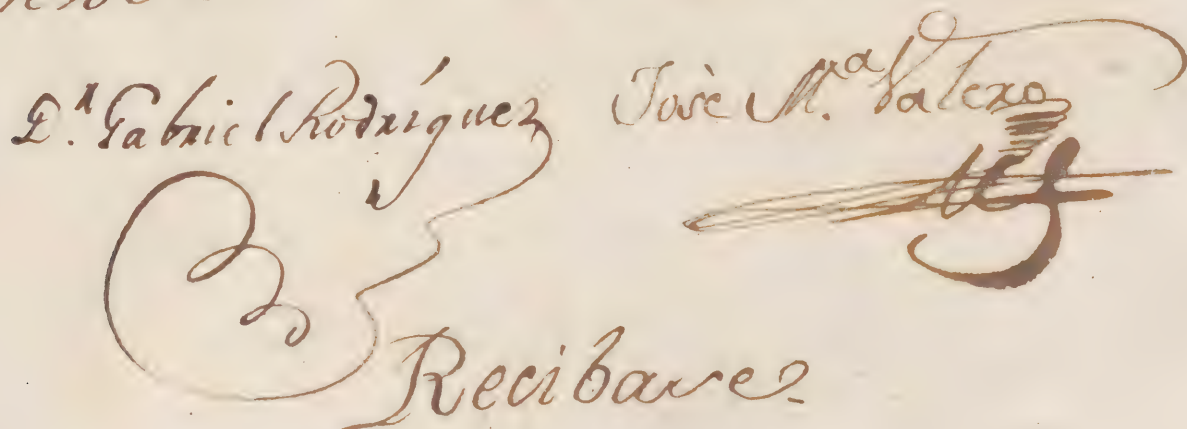 D.ⁿ Gabriel Rodríguez José M.ᵃ Valero
Recibase